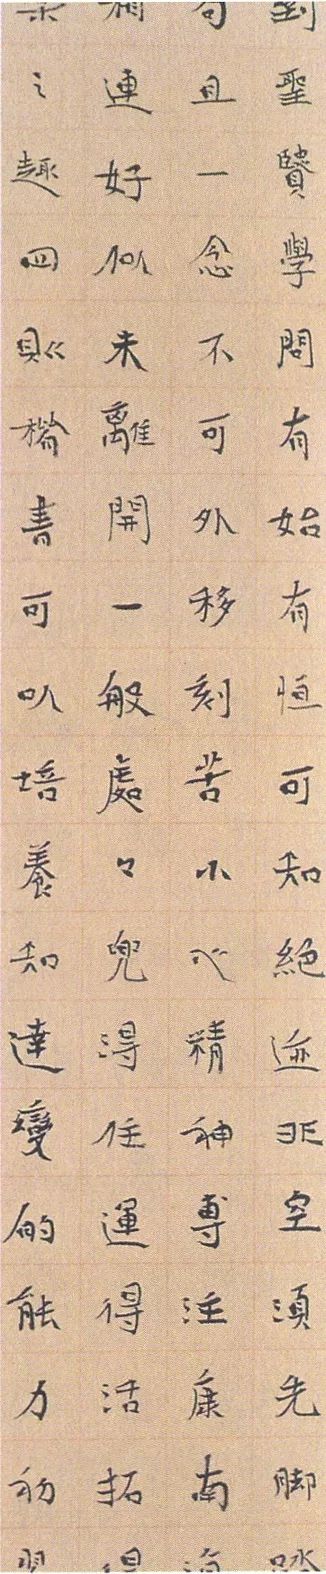 聖賢學問有始有恒可知絕迹非空須先脚踏
句且一念不可外移刻苦小心精神專注康南海
連好似未離開一般處々兜得住運得活拓得
之趣四則楷書可以培養知達變的能力初習